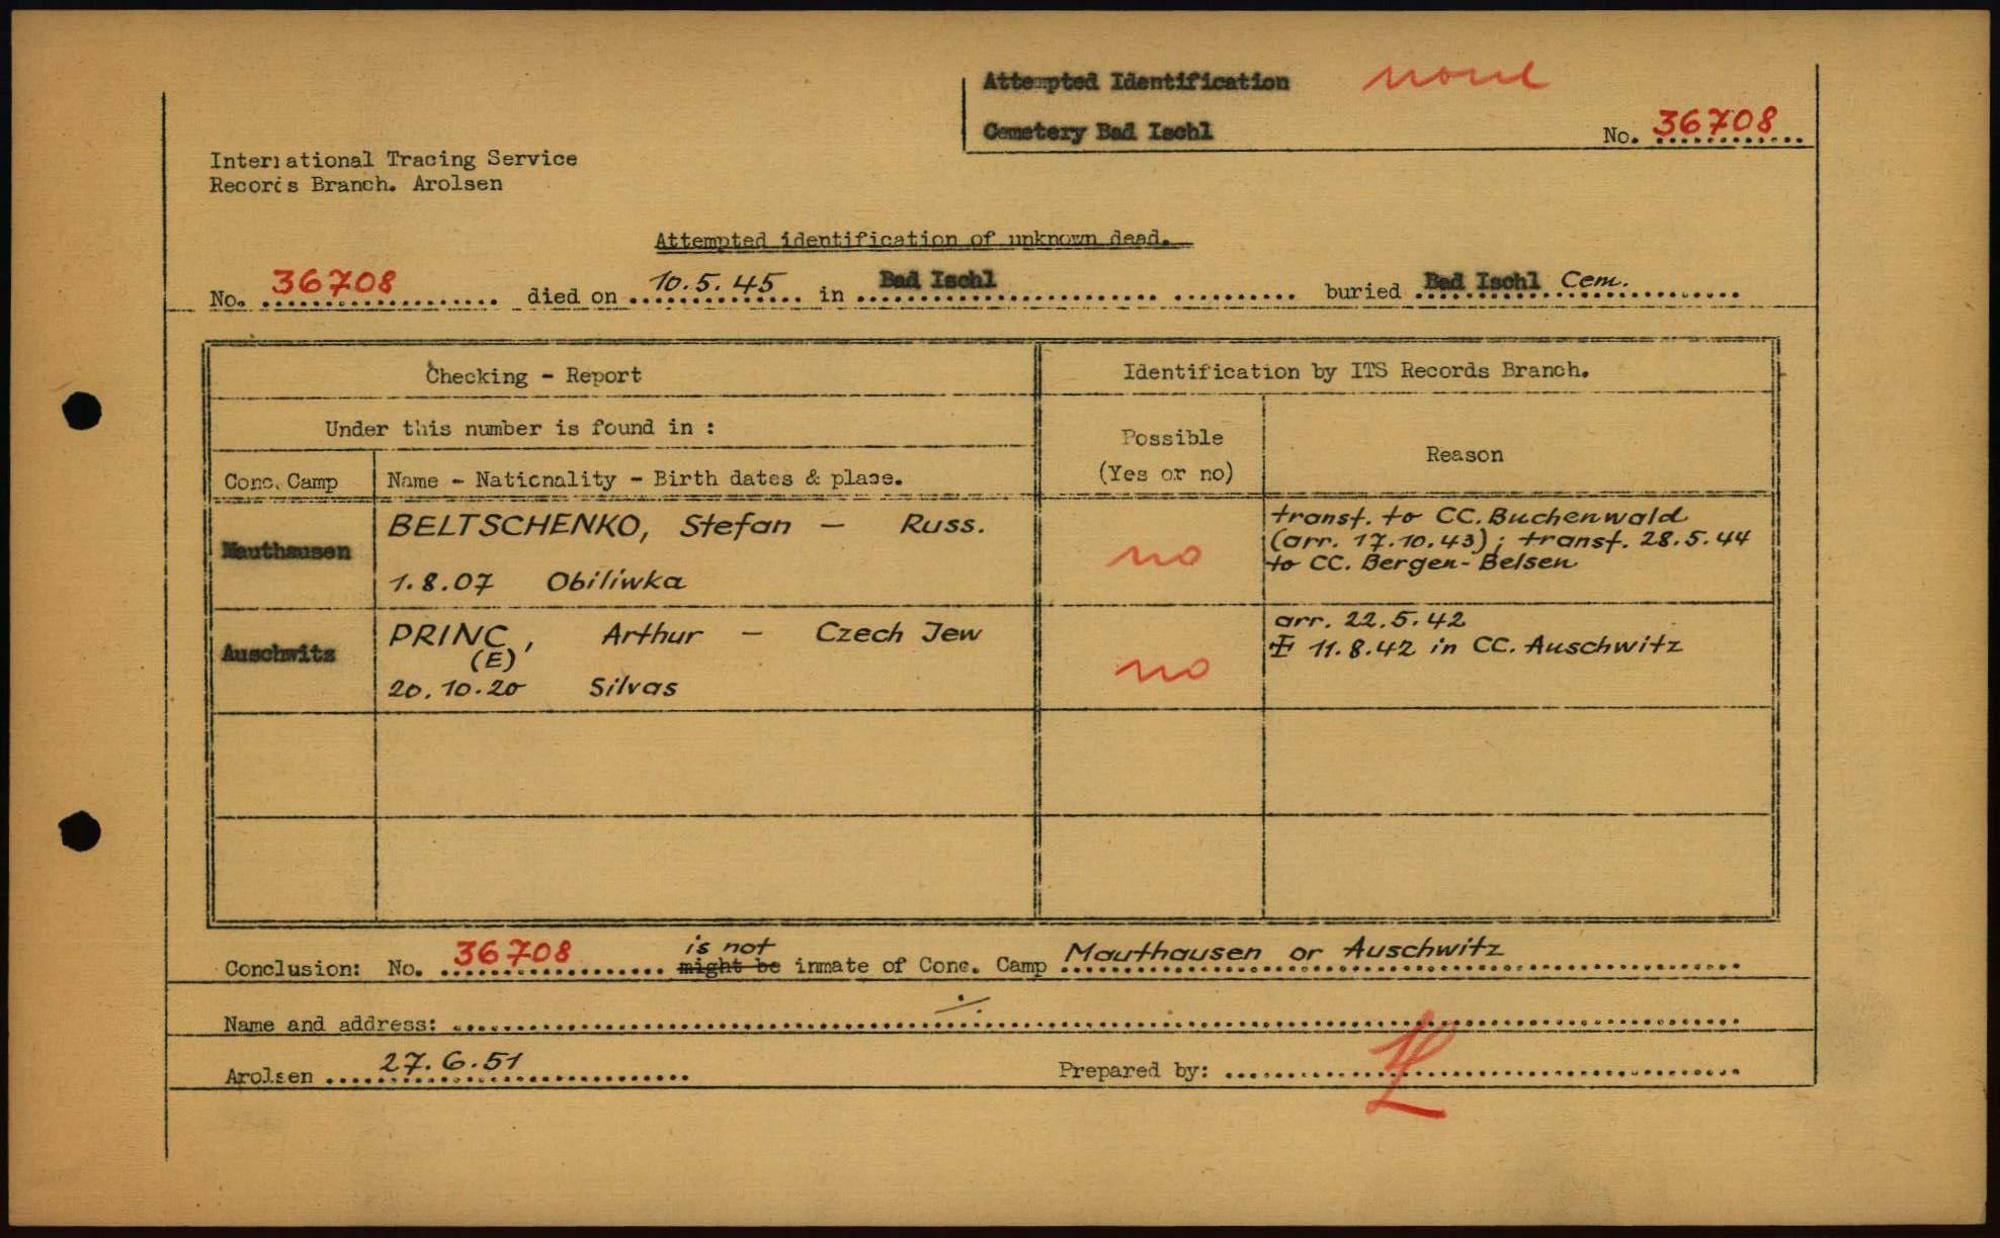 Attempted Identification none
Cemetery Bad Ischl No. 36708
International Tracing Service
Records Branch. Arolsen
Attempted identification of unknown dead.
No. 36708 died on 10.5.45 in Bad Ischl buried Bad Ischl Cem.
Checking - Report
Identification by ITS Records Branch.
Under this number is found in :
Possible
(Yes or no)
Reason
Conc. Camp
Name - Nationality - Birth dates & place.
Mauthausen
BELTSCHENKO, Stefan – Russ.
1.8.07 Obiliwka
no
transf. to CC. Buchenwald
(arr. 17.10.43); transf. 28.5.44
to CC. Bergen-Belsen
Auschwitz
PRINC, Arthur – Czech Jew
(E)
20.10.20 Silvas
no
arr. 22.5.42
11.8.42 in CC. Auschwitz
is not
Conclusion: No. 36708 might be inmate of Conc. Camp Mauthausen or Auschwitz
Name and address:
Arolsen 27.6.51 Prepared by: